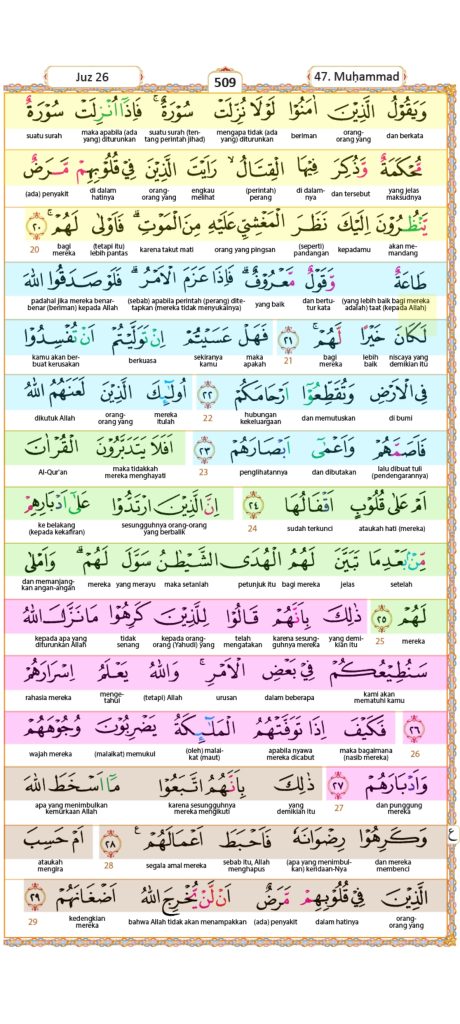 Juz 26 509 47. Muḥammad
وَيَقُوْلُ الَّذِيْنَ اٰمَنُوْا لَوْلَا نُزِّلَتْ سُوْرَةٌ ۚ فَاِذَآ اُنْزِلَتْ سُوْرَةٌ
dan berkata orang-orang yang beriman mengapa tidak (ada yang) diturunkan suatu surah (tentang perintah jihad) maka apabila (ada yang) diturunkan suatu surah
مُّحْكَمَةٌ وَّذُكِرَ فِيْهَا الْقِتَالُ ۙ رَاَيْتَ الَّذِيْنَ فِيْ قُلُوْبِهِمْ مَّرَضٌ
yang jelas maksudnya dan tersebut di dalamnya (perintah) perang engkau melihat orang-orang yang di dalam hatinya (ada) penyakit
يَّنْظُرُوْنَ اِلَيْكَ نَظَرَ الْمَغْشِيِّ عَلَيْهِ مِنَ الْمَوْتِ ۗ فَاَوْلٰى لَهُمْ ۚ ٢٠
akan memandang kepadamu (seperti) pandangan orang yang pingsan karena takut mati (tetapi itu) lebih pantas bagi mereka 20
طَاعَةٌ وَّقَوْلٌ مَّعْرُوْفٌ ۗ فَاِذَا عَزَمَ الْاَمْرُ ۗ فَلَوْ صَدَقُوا اللّٰهَ
(yang lebih baik bagi mereka adalah) taat (kepada Allah) dan bertutur kata yang baik (sebab) apabila perintah (perang) ditetapkan (mereka tidak menyukainya) padahal jika mereka benar-benar (beriman) kepada Allah
لَكَانَ خَيْرًا لَّهُمْ ۚ ٢١ فَهَلْ عَسَيْتُمْ اِنْ تَوَلَّيْتُمْ اَنْ تُفْسِدُوْا
niscaya yang demikian itu lebih baik bagi mereka 21 maka apakah sekiranya kamu berkuasa kamu akan berbuat kerusakan
فِى الْاَرْضِ وَتُقَطِّعُوْٓا اَرْحَامَكُمْ ٢٢ اُولٰۤىِٕكَ الَّذِيْنَ لَعَنَهُمُ اللّٰهُ
di bumi dan memutuskan hubungan kekeluargaan 22 mereka itulah orang-orang yang dikutuk Allah
فَاَصَمَّهُمْ وَاَعْمٰٓى اَبْصَارَهُمْ ٢٣ اَفَلَا يَتَدَبَّرُوْنَ الْقُرْاٰنَ
lalu dibuat tuli (pendengarannya) dan dibutakan penglihatannya 23 maka tidakkah mereka menghayati Al-Qur'an
اَمْ عَلٰى قُلُوْبٍ اَقْفَالُهَا ٢٤ اِنَّ الَّذِيْنَ ارْتَدُّوْا عَلٰٓى اَدْبَارِهِمْ
ataukah hati (mereka) sudah terkunci 24 sesungguhnya orang-orang yang berbalik ke belakang (kepada kekafiran)
مِّنْۢ بَعْدِ مَا تَبَيَّنَ لَهُمُ الْهُدَى الشَّيْطٰنُ سَوَّلَ لَهُمْ ۗ وَاَمْلٰى
setelah jelas bagi mereka petunjuk itu maka setanlah yang merayu mereka dan memanjangkan angan-angan
لَهُمْ ٢٥ ذٰلِكَ بِاَنَّهُمْ قَالُوْا لِلَّذِيْنَ كَرِهُوْا مَا نَزَّلَ اللّٰهُ
mereka 25 yang demikian itu karena sesungguhnya mereka telah mengatakan kepada orang-orang (Yahudi) yang tidak senang kepada apa yang diturunkan Allah
سَنُطِيْعُكُمْ فِيْ بَعْضِ الْاَمْرِ ۚ وَاللّٰهُ يَعْلَمُ اِسْرَارَهُمْ
kami akan mematuhi kamu dalam beberapa urusan (tetapi) Allah mengetahui rahasia mereka
٢٦ فَكَيْفَ اِذَا تَوَفَّتْهُمُ الْمَلٰۤىِٕكَةُ يَضْرِبُوْنَ وُجُوْهَهُمْ
26 maka bagaimana (nasib mereka) apabila nyawa mereka dicabut (oleh) malaikat (maut) (malaikat) memukul wajah mereka
وَاَدْبَارَهُمْ ٢٧ ذٰلِكَ بِاَنَّهُمُ اتَّبَعُوْا مَآ اَسْخَطَ اللّٰهَ
dan punggung mereka 27 yang demikian itu karena sesungguhnya mereka mengikuti apa yang menimbulkan kemurkaan Allah
وَكَرِهُوْا رِضْوَانَهٗ فَاَحْبَطَ اَعْمَالَهُمْ ۚ ٢٨ اَمْ حَسِبَ ع
dan mereka membenci (apa yang menimbulkan) keridaan-Nya sebab itu, Allah menghapus segala amal mereka 28 ataukah mengira
الَّذِيْنَ فِيْ قُلُوْبِهِمْ مَّرَضٌ اَنْ لَّنْ يُّخْرِجَ اللّٰهُ اَضْغَانَهُمْ ٢٩
orang-orang yang dalam hatinya (ada) penyakit bahwa Allah tidak akan menampakkan kedengkian mereka 29